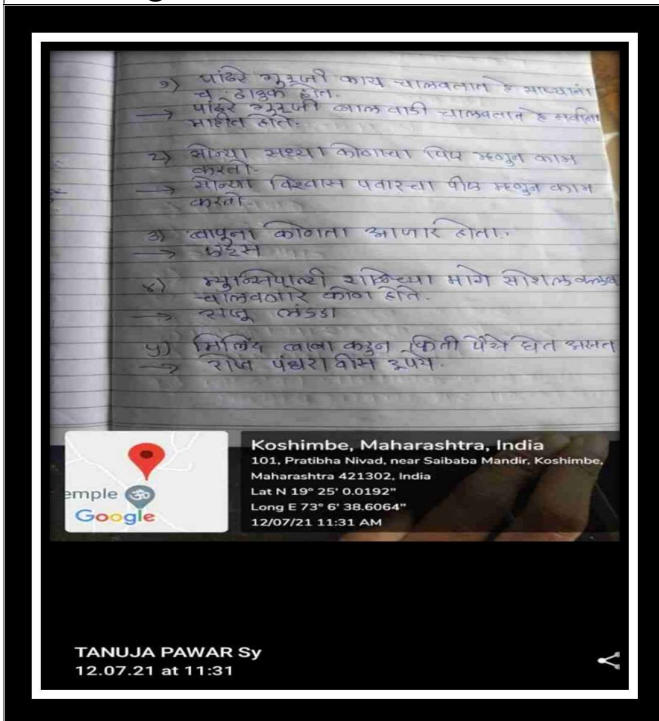 १) पांढरे गुरुजी काय चालवतात हे
होते.
→ पांढरे गुरुजी बालवाडी चालवतात हे सर्वांना
माहीत होते.
२) सोन्या सध्या कोणाचा पिए म्हणुन काम
करतो.
→ सोन्या विश्वास पवारचा पीए म्हणुन काम
करतो.
३) बापुना कोणता आजार होता.
→ एड्स
४) म्युन्सिपाल्टी शाळेच्या मागे सोशल क्लब
चालवणार कोण होते.
→ राजू लंगडा
५) मिलिंद बाबा कडुन किती पैसे घेत असत
→ रोज पंधरा वीस रुपये.
emple
Google
Koshimbe, Maharashtra, India
101, Pratibha Nivad, near Saibaba Mandir, Koshimbe,
Maharashtra 421302, India
Lat N 19° 25' 0.0192"
Long E 73° 6' 38.6064"
12/07/21 11:31 AM
TANUJA PAWAR Sy
12.07.21 at 11:31